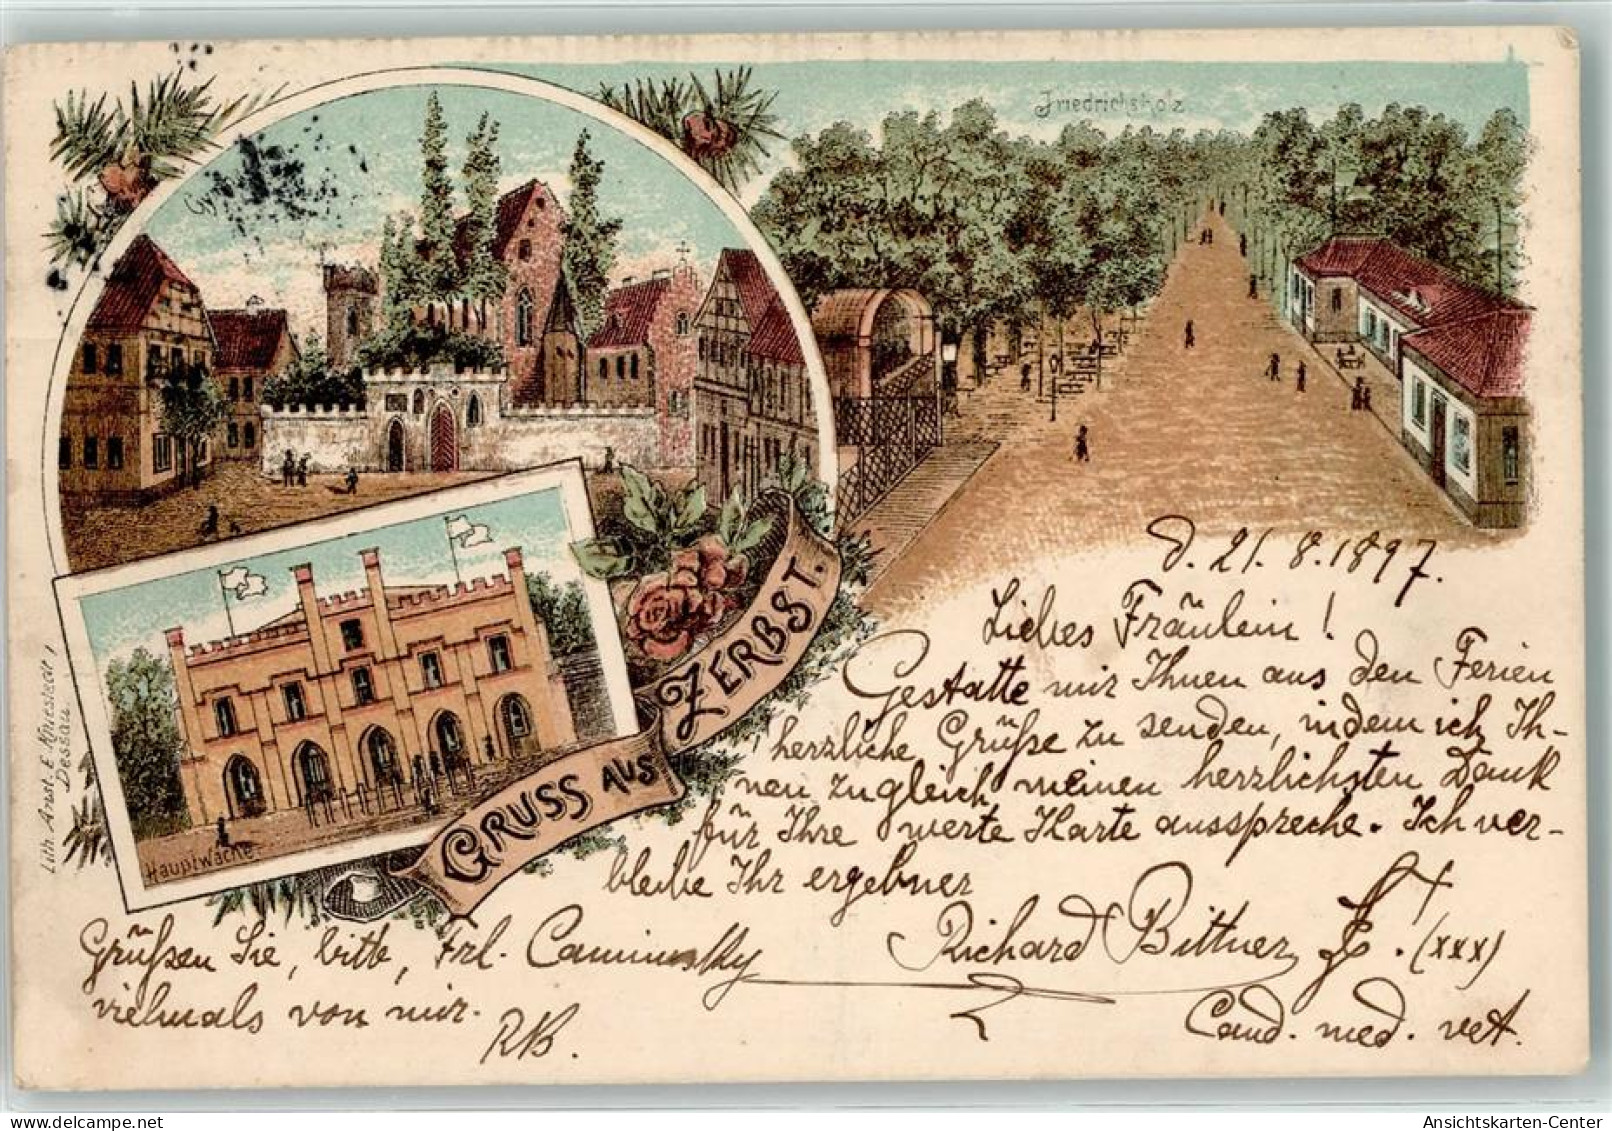 Friedrichsholz
Hauptwache
GRUSS AUS ZERBST.
Lith. Anst. E. Knestedt,
Dessau
d. 21. 8. 1897.
Liebes Fräulein!
Gestatte mir Ihnen aus den Ferien
herzliche Grüße zu senden, indem ich Ih-
nen zugleich meinen herzlichsten Dank
für Ihre werte Karte ausspreche. Ich ver-
bleibe Ihr ergebner
Richard Bittner (xxx)
Cand. med. vet.
Grüßen Sie, bitte, Frl. Caminsky
vielmals von mir.
RB.
Ansichtskarten-Center